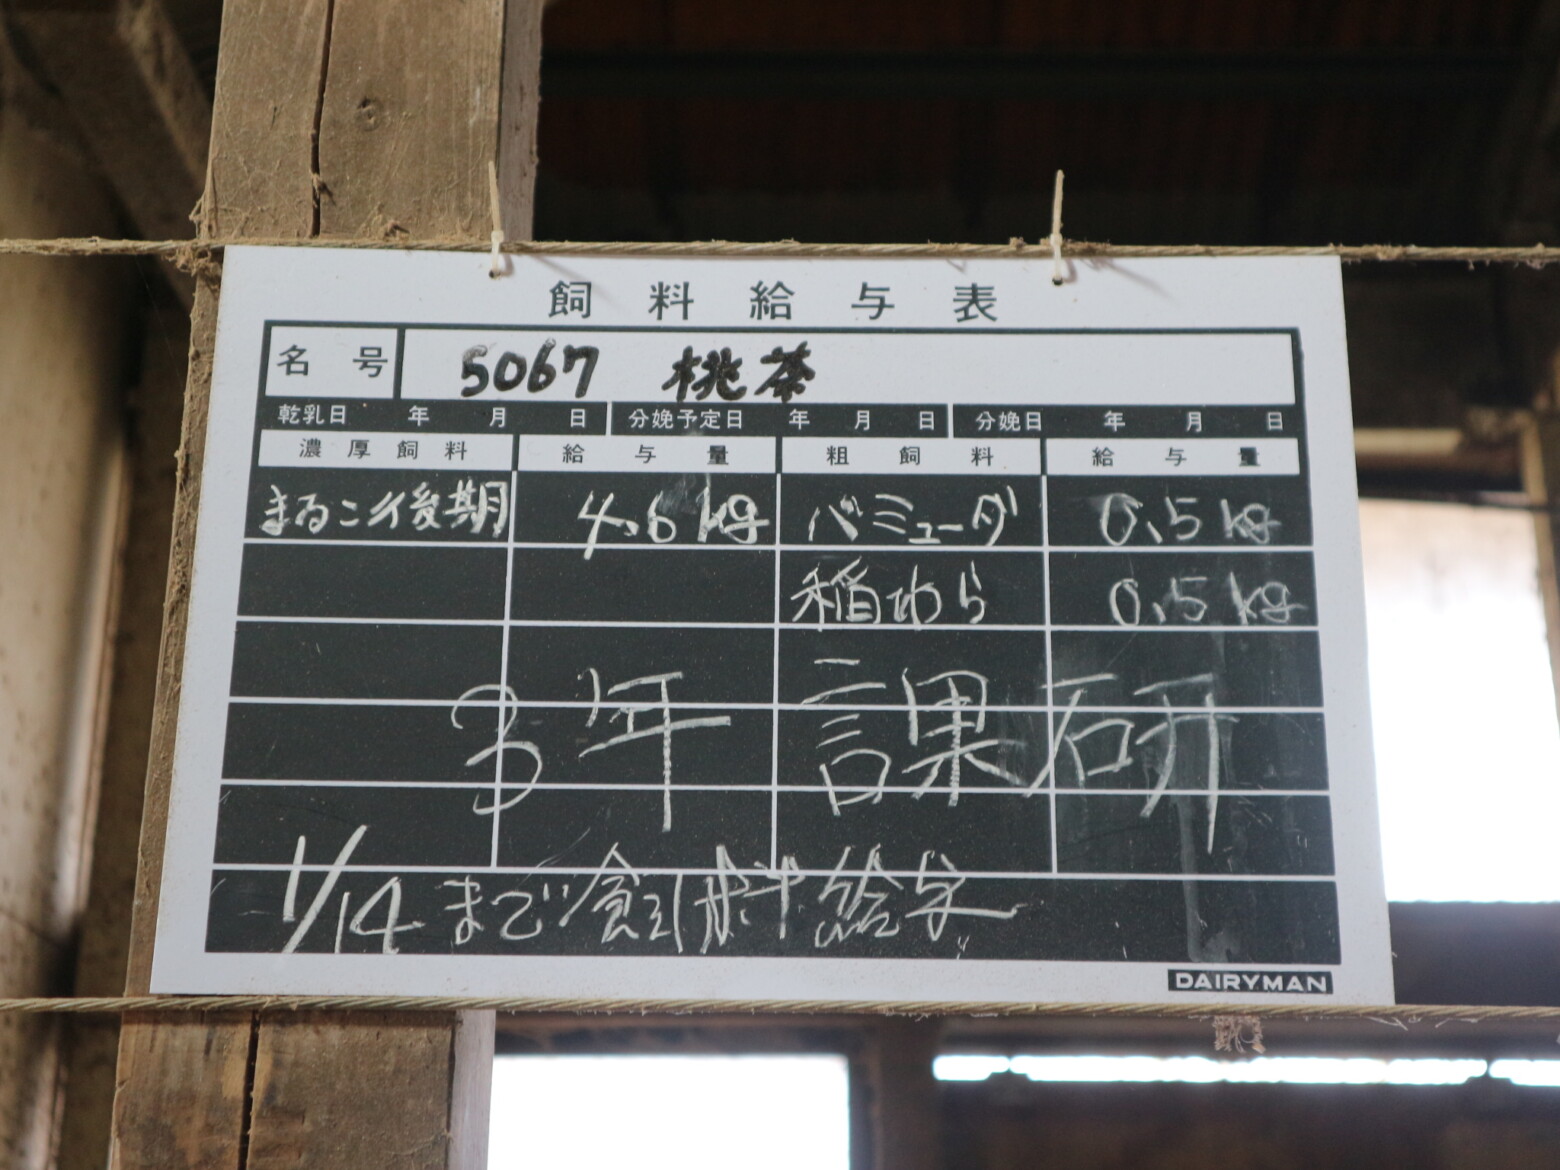 飼料給与表
名号 5067 桃茶
乾乳日 年 月 日 分娩予定日 年 月 日 分娩日 年 月 日
濃厚飼料 給与量 粗飼料 給与量
後期 4.6kg バミューダ 0.5kg
稲わら 0.5kg
3年 課研
1/14まで飼料給与
DAIRYMAN